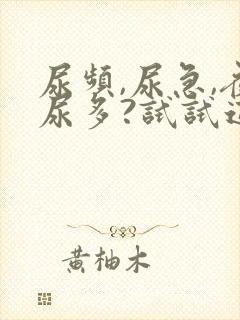 尿頻,尿急,
尿多?試試
黃柚木